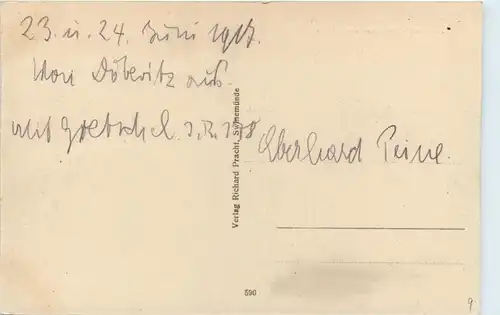 23. u. 24. Juni 1917.
Von Döberitz aus.
mit Goetschel
Eberhard Peine.
Verlag Richard Pracht, Swinemünde
590
9